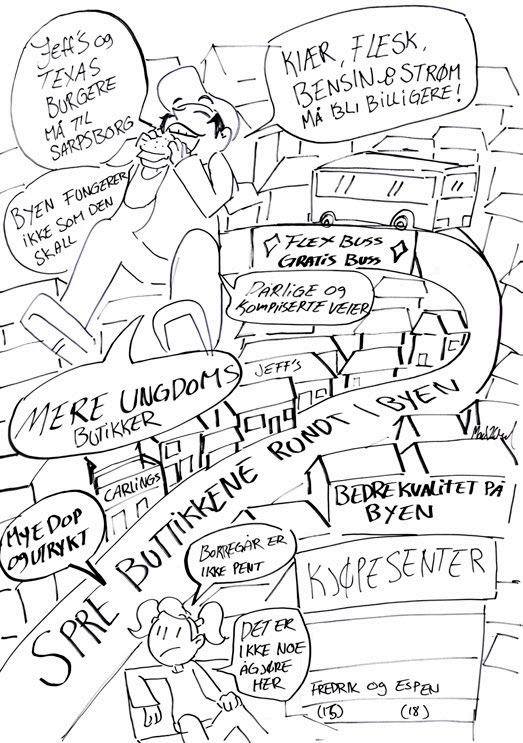 JEFF'S OG
TEXAS
BURGERE
MÅ TIL
SARPSBORG
KIÆR, FLESK,
BENSIN & STRØM
MÅ BLI BILLIGERE!
BYEN FUNGERER
IKKE SOM DEN
SKALL
FLEX BUSS
GRATIS BUSS
DARLIGE OG
KOMPISERTE VEIER
MERE UNGDOMS
BUTIKKER
JEFF'S
CARLINGS
SPRE BUTTIKKENE RONDT I BYEN
BEDRE KVALITET PÅ
BYEN
MYE DOP
OG UTRYKT
BORREGÅR ER
IKKE PENT
KJØPESENTER
DET ER
IKKE NOE
Å GJØRE
HER
FREDRIK OG ESPEN
(15) (18)